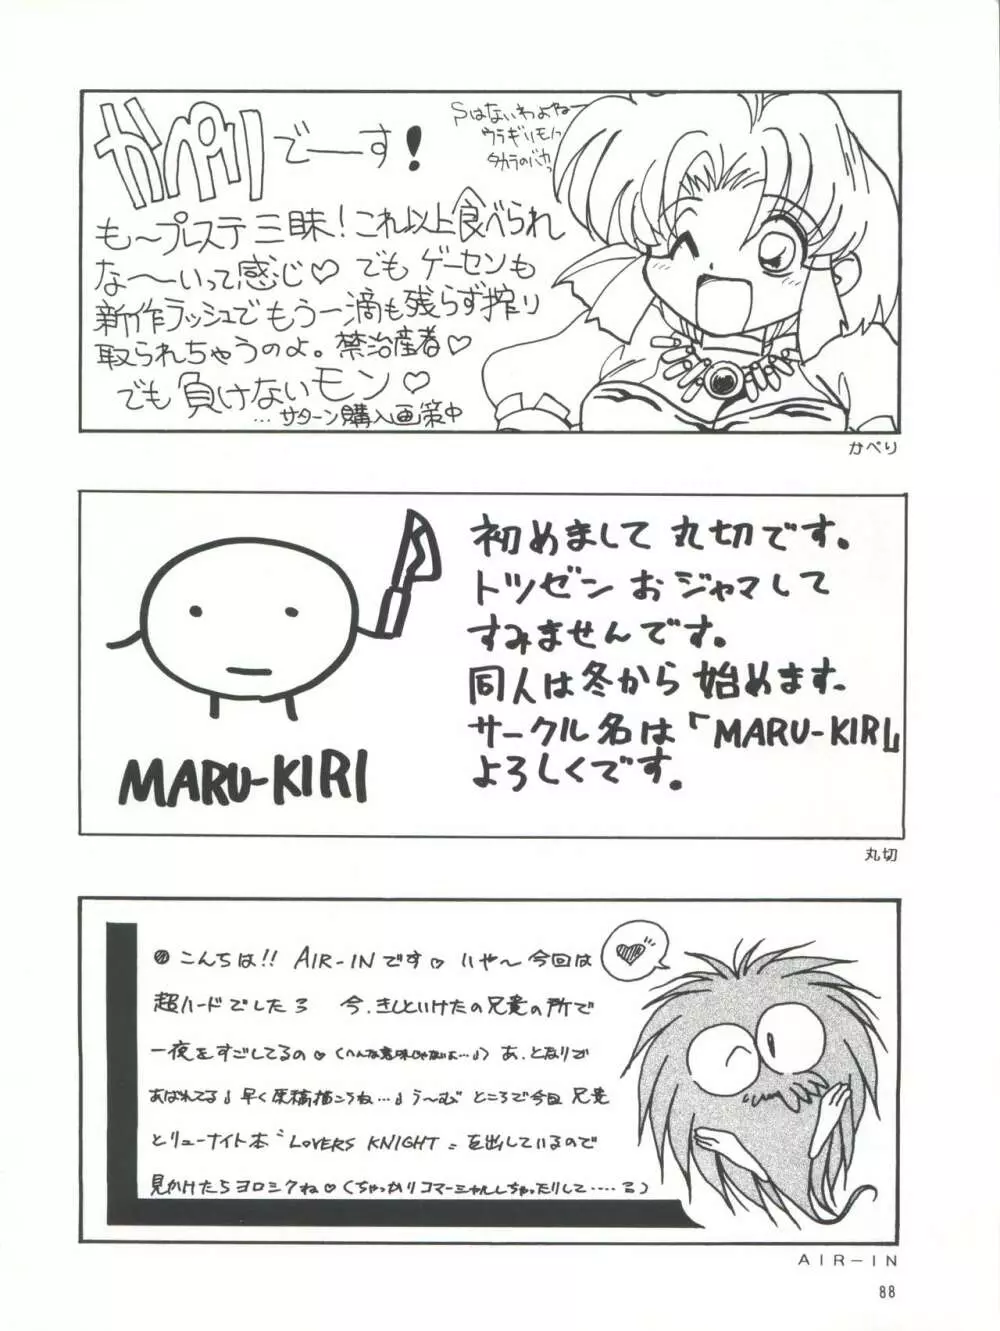 かぺりでーす!
Sはないわよねー
ウラギリモノッ
タカラのバカッ
も〜プレステ三昧!これ以上食べられ
な〜〜いって感じ♡でもゲーセンも
新作ラッシュでもう一滴も残らず搾り
取られちゃうのよ。禁治産者♡
でも負けないモン♡
…サターン購入画策中
かぺり
初めまして丸切です。
トツゼンおジャマして
すみませんです。
同人は冬から始めます。
サークル名は「MARU-KIRI」
よろしくです。
MARU-KIRI
丸切
こんちは!! AIR-INです♡いや〜今回は
超ハードでしたろ 今、きしといけたの兄貴の所で
一夜をすごしてるの♡(へんな意味じゃないよ…♪)あ、となりで
あばれてる♪早く原稿描こうね…♪う〜むところで今回兄貴
とリューナイト本〝LOVERS KNIGHT〟を出しているので
見かけたらヨロシクね♡(ちゃっかりコマーシャルしちゃったりして……ろ)
AIR-IN
88